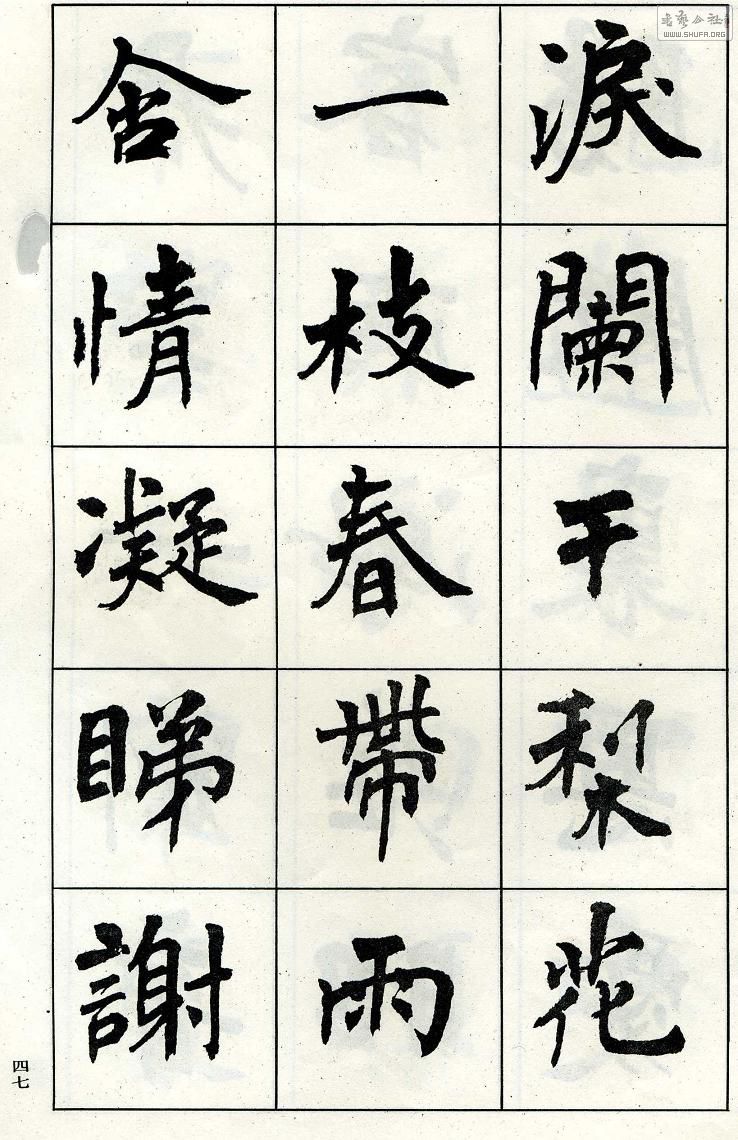 淚闌干梨花
一枝春帶雨
含情凝睇謝
四七
WWW.SHUFA.ORG